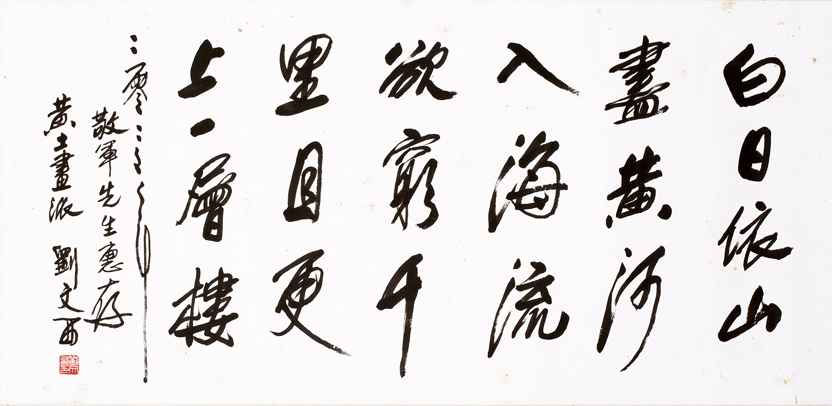 白日依山
盡黃河
入海流
欲窮千
里目更
上一層樓
二零年
敬軍先生惠存
黃土畫派 劉文西